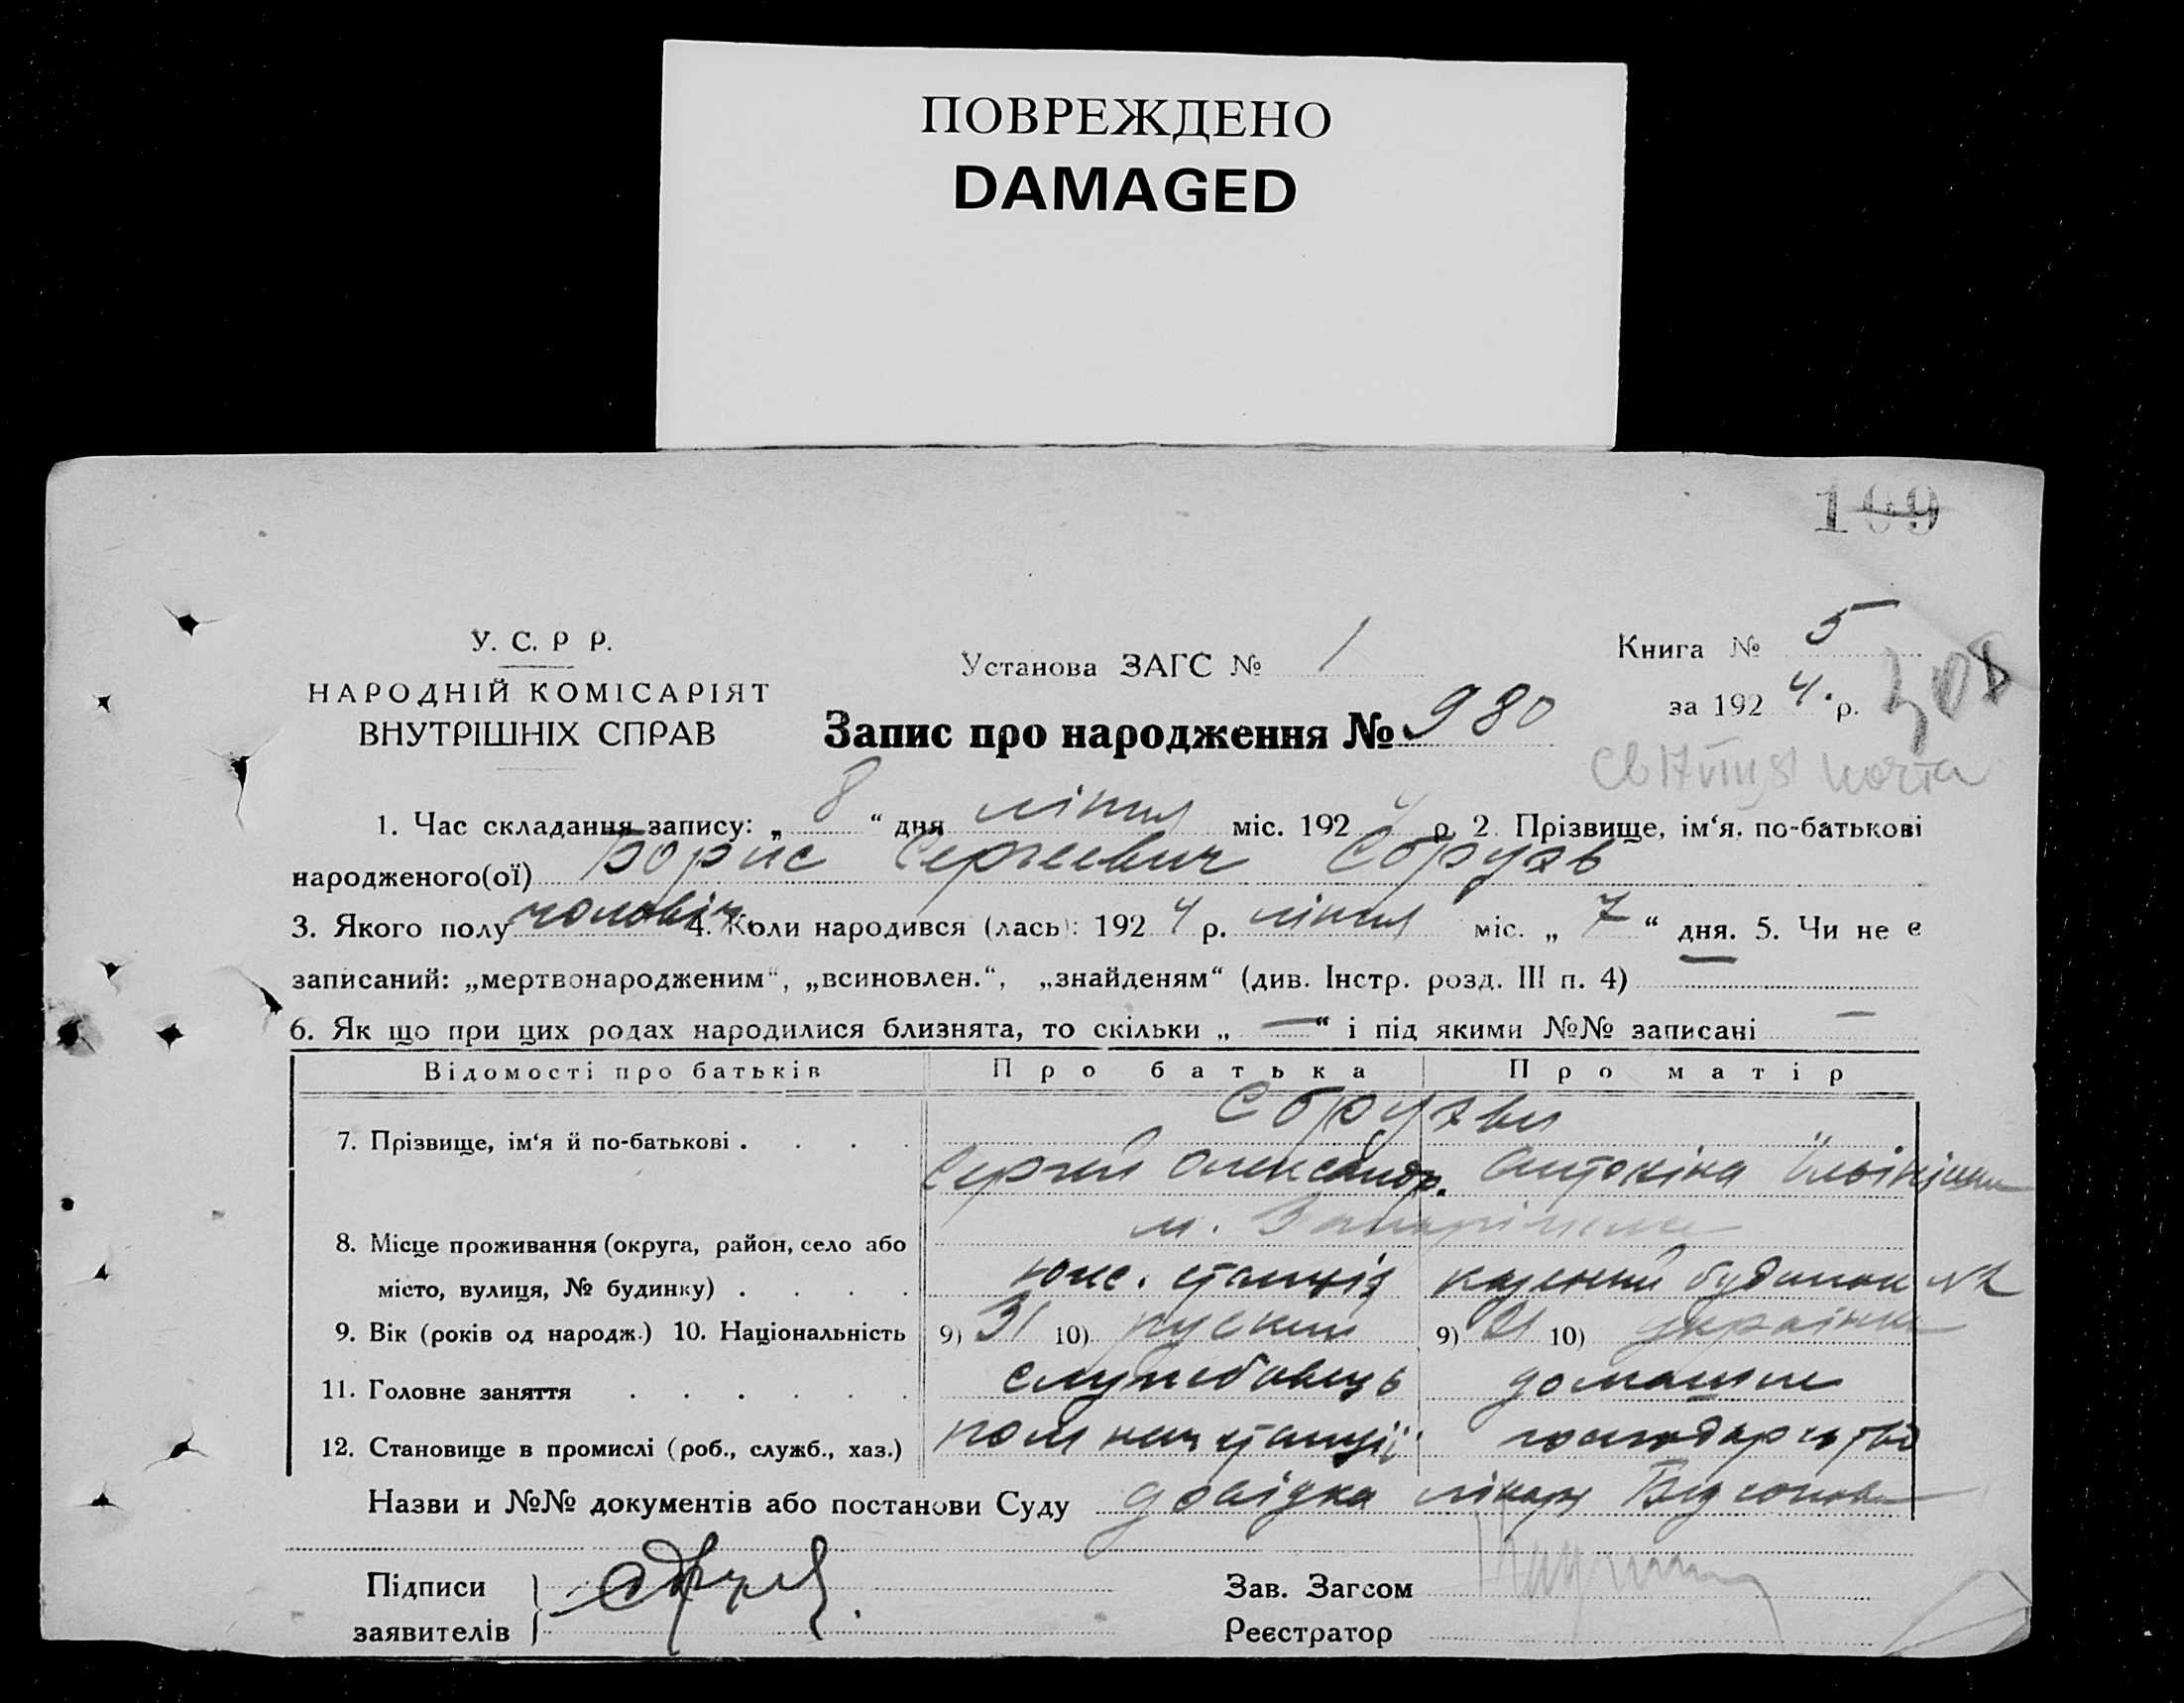 ПОВРЕЖДЕНО
DAMAGED
109
У. С. Р Р.
НАРОДНІЙ КОМІСАРІЯТ
ВНУТРІШНІХ СПРАВ
Установа ЗАГС № 1
Книга № 5
за 192 4. р.
308
Запис про народження № 980
1. Час складання запису: „ 8 “ дня ліпця міс. 192 4 р. 2 Прізвище, ім‘я. по-батькові
народженого(ої) Борис Сергеевич
3. Якого полу чоловіч. 4. Коли народився (лась): 192 4 р. ліпця міс. „ 7 “ дня. 5. Чи не є
записаний: „мертвонародженим“, „всиновлен.“, „знайденям“ (див. Інстр. розд. III п. 4)
6. Як що при цих родах народилися близнята, то скільки „ — “ і під якими №№ записані —
Відомості про батьків Про батька Про матір
7. Прізвище, ім‘я й по-батькові . . . .
Сергій Олександр.
м.
8. Місце проживання (округа, район, село або
місто, вулиця, № будинку) . . . . станція казений будинок №
9. Вік (років од народж.) 10. Національність 9) 31 10) руский 9) 21 10) українка
11. Головне заняття . . . . . . служебовець домашнє
12. Становище в промислі (роб., служб., хаз.) пом нач станції господарство
Назви и №№ документів або постанови Суду довідка лікаря
Підписи
заявителів
Зав. Загсом
Реєстратор